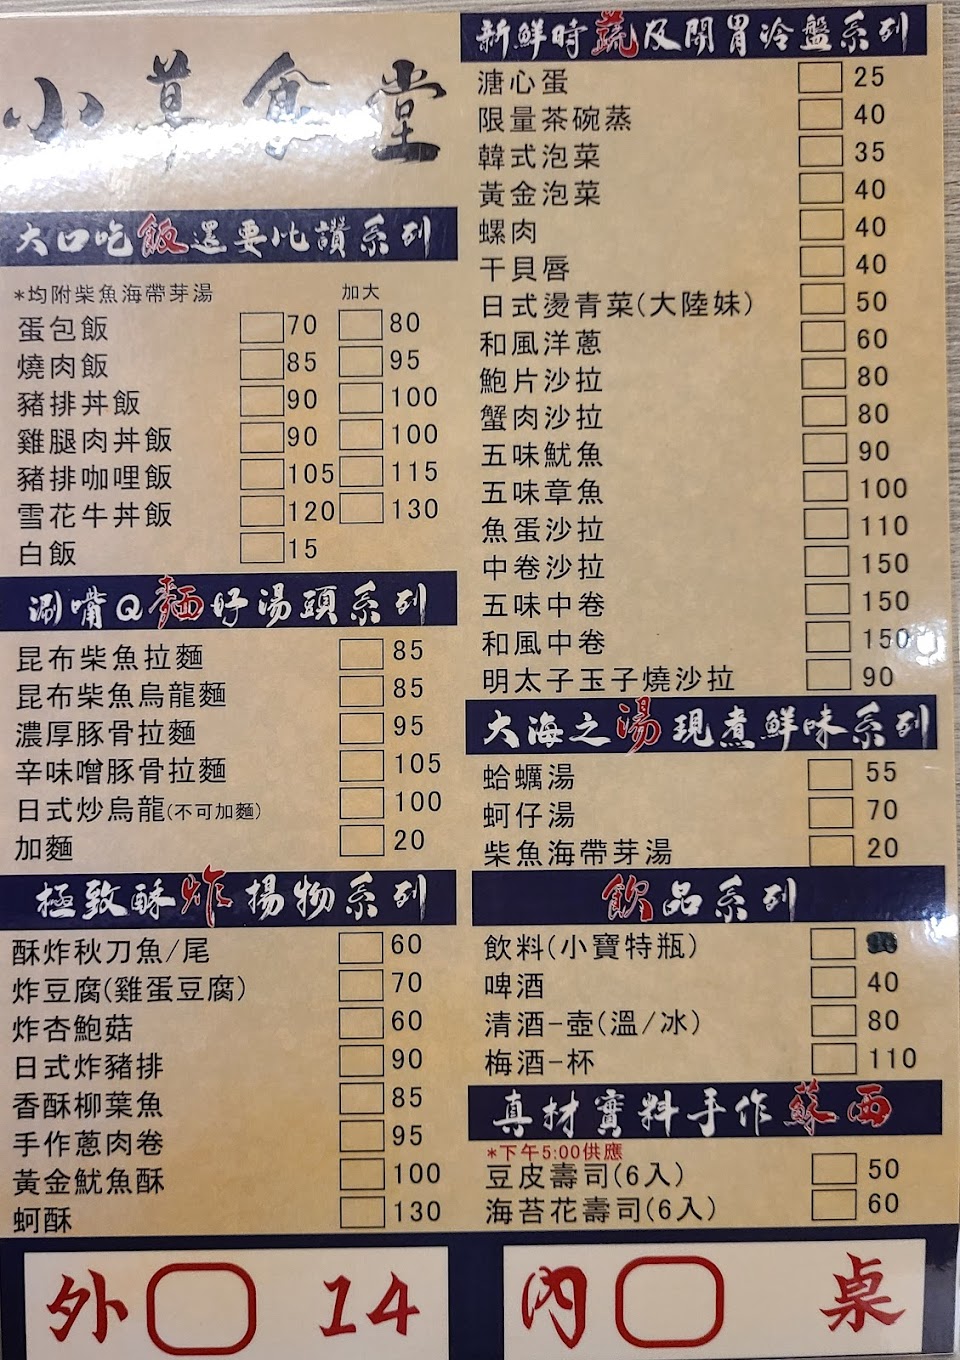 小草食堂
大口吃飯還要比讚系列
*均附柴魚海帶芽湯 加大
蛋包飯 70 80
燒肉飯 85 95
豬排丼飯 90 100
雞腿肉丼飯 90 100
豬排咖哩飯 105 115
雪花牛丼飯 120 130
白飯 15
涮嘴Q麵好湯頭系列
昆布柴魚拉麵 85
昆布柴魚烏龍麵 85
濃厚豚骨拉麵 95
辛味噌豚骨拉麵 105
日式炒烏龍(不可加麵) 100
加麵 20
極致酥炸揚物系列
酥炸秋刀魚/尾 60
炸豆腐(雞蛋豆腐) 70
炸杏鮑菇 60
日式炸豬排 90
香酥柳葉魚 85
手作蔥肉卷 95
黃金魷魚酥 100
蚵酥 130
新鮮時蔬及開胃冷盤系列
溏心蛋 25
限量茶碗蒸 40
韓式泡菜 35
黃金泡菜 40
螺肉 40
干貝唇 40
日式燙青菜(大陸妹) 50
和風洋蔥 60
鮑片沙拉 80
蟹肉沙拉 80
五味魷魚 90
五味章魚 100
魚蛋沙拉 110
中卷沙拉 150
五味中卷 150
和風中卷 150
明太子玉子燒沙拉 90
大海之湯現煮鮮味系列
蛤蠣湯 55
蚵仔湯 70
柴魚海帶芽湯 20
飲品系列
飲料(小寶特瓶)
啤酒 40
清酒-壺(溫/冰) 80
梅酒-杯 110
真材實料手作蘇西
*下午5:00供應
豆皮壽司(6入) 50
海苔花壽司(6入) 60
外 14
內 桌